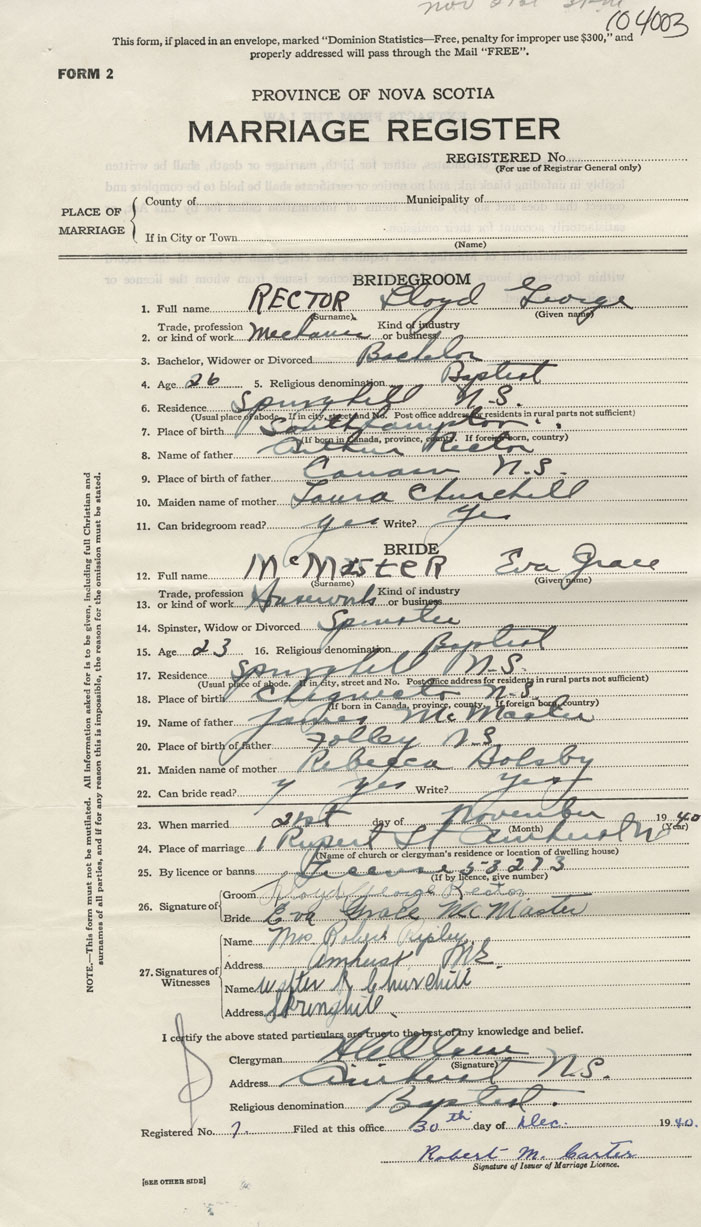 Nov 21st
104003
This form, if placed in an envelope, marked "Dominion Statistics—Free, penalty for improper use $300," and
properly addressed will pass through the Mail "FREE".
FORM 2
PROVINCE OF NOVA SCOTIA
MARRIAGE REGISTER
REGISTERED No.
(For use of Registrar General only)
PLACE OF MARRIAGE
County of Municipality of
If in City or Town
(Name)
BRIDEGROOM
1. Full name RECTOR Lloyd George
(Surname) (Given name)
2. Trade, profession or kind of work Mechanic Kind of industry or business
3. Bachelor, Widower or Divorced Bachelor
4. Age 26 5. Religious denomination Baptist
6. Residence Springhill N.S.
(Usual place of abode. If in city, street and No. Post office address for residents in rural parts not sufficient)
7. Place of birth Southampton
(If born in Canada, province, county. If foreign born, country)
8. Name of father Arthur Rector
9. Place of birth of father Canaan N.S.
10. Maiden name of mother Laura Churchill
11. Can bridegroom read? yes Write? yes
BRIDE
12. Full name McMASTER Eva Grace
(Surname) (Given name)
13. Trade, profession or kind of work Housework Kind of industry or business
14. Spinster, Widow or Divorced Spinster
15. Age 23 16. Religious denomination Baptist
17. Residence Springhill N.S.
(Usual place of abode. If in city, street and No. Post office address for residents in rural parts not sufficient)
18. Place of birth Chignecto N.S.
(If born in Canada, province, county. If foreign born, country)
19. Name of father James McMaster
20. Place of birth of father Folley N.S
21. Maiden name of mother Rebecca
22. Can bride read? y yes Write? yes
23. When married 21st day of November 1940
(Month) (Year)
24. Place of marriage 1 Rupert St Amherst N
(Name of church or clergyman's residence or location of dwelling house)
25. By licence or banns License 53273
(If by licence, give number)
26. Signature of
Groom Lloyd George Rector
Bride Eva Grace McMaster
27. Signatures of Witnesses
Name Mrs Robert Ripley
Address Amherst N.S.
Name Walter R Churchill
Address Springhill
I certify the above stated particulars are true to the best of my knowledge and belief.
Clergyman
(Signature)
Address Amherst N.S.
Religious denomination Baptist.
Registered No. 7. Filed at this office 30th day of Dec. 1940.
Robert M. Carter
Signature of Issuer of Marriage Licence.
[SEE OTHER SIDE]
NOTE.—This form must not be mutilated. All information asked for is to be given, including full Christian and
surnames of all parties, and if for any reason this is impossible, the reason for the omission must be stated.